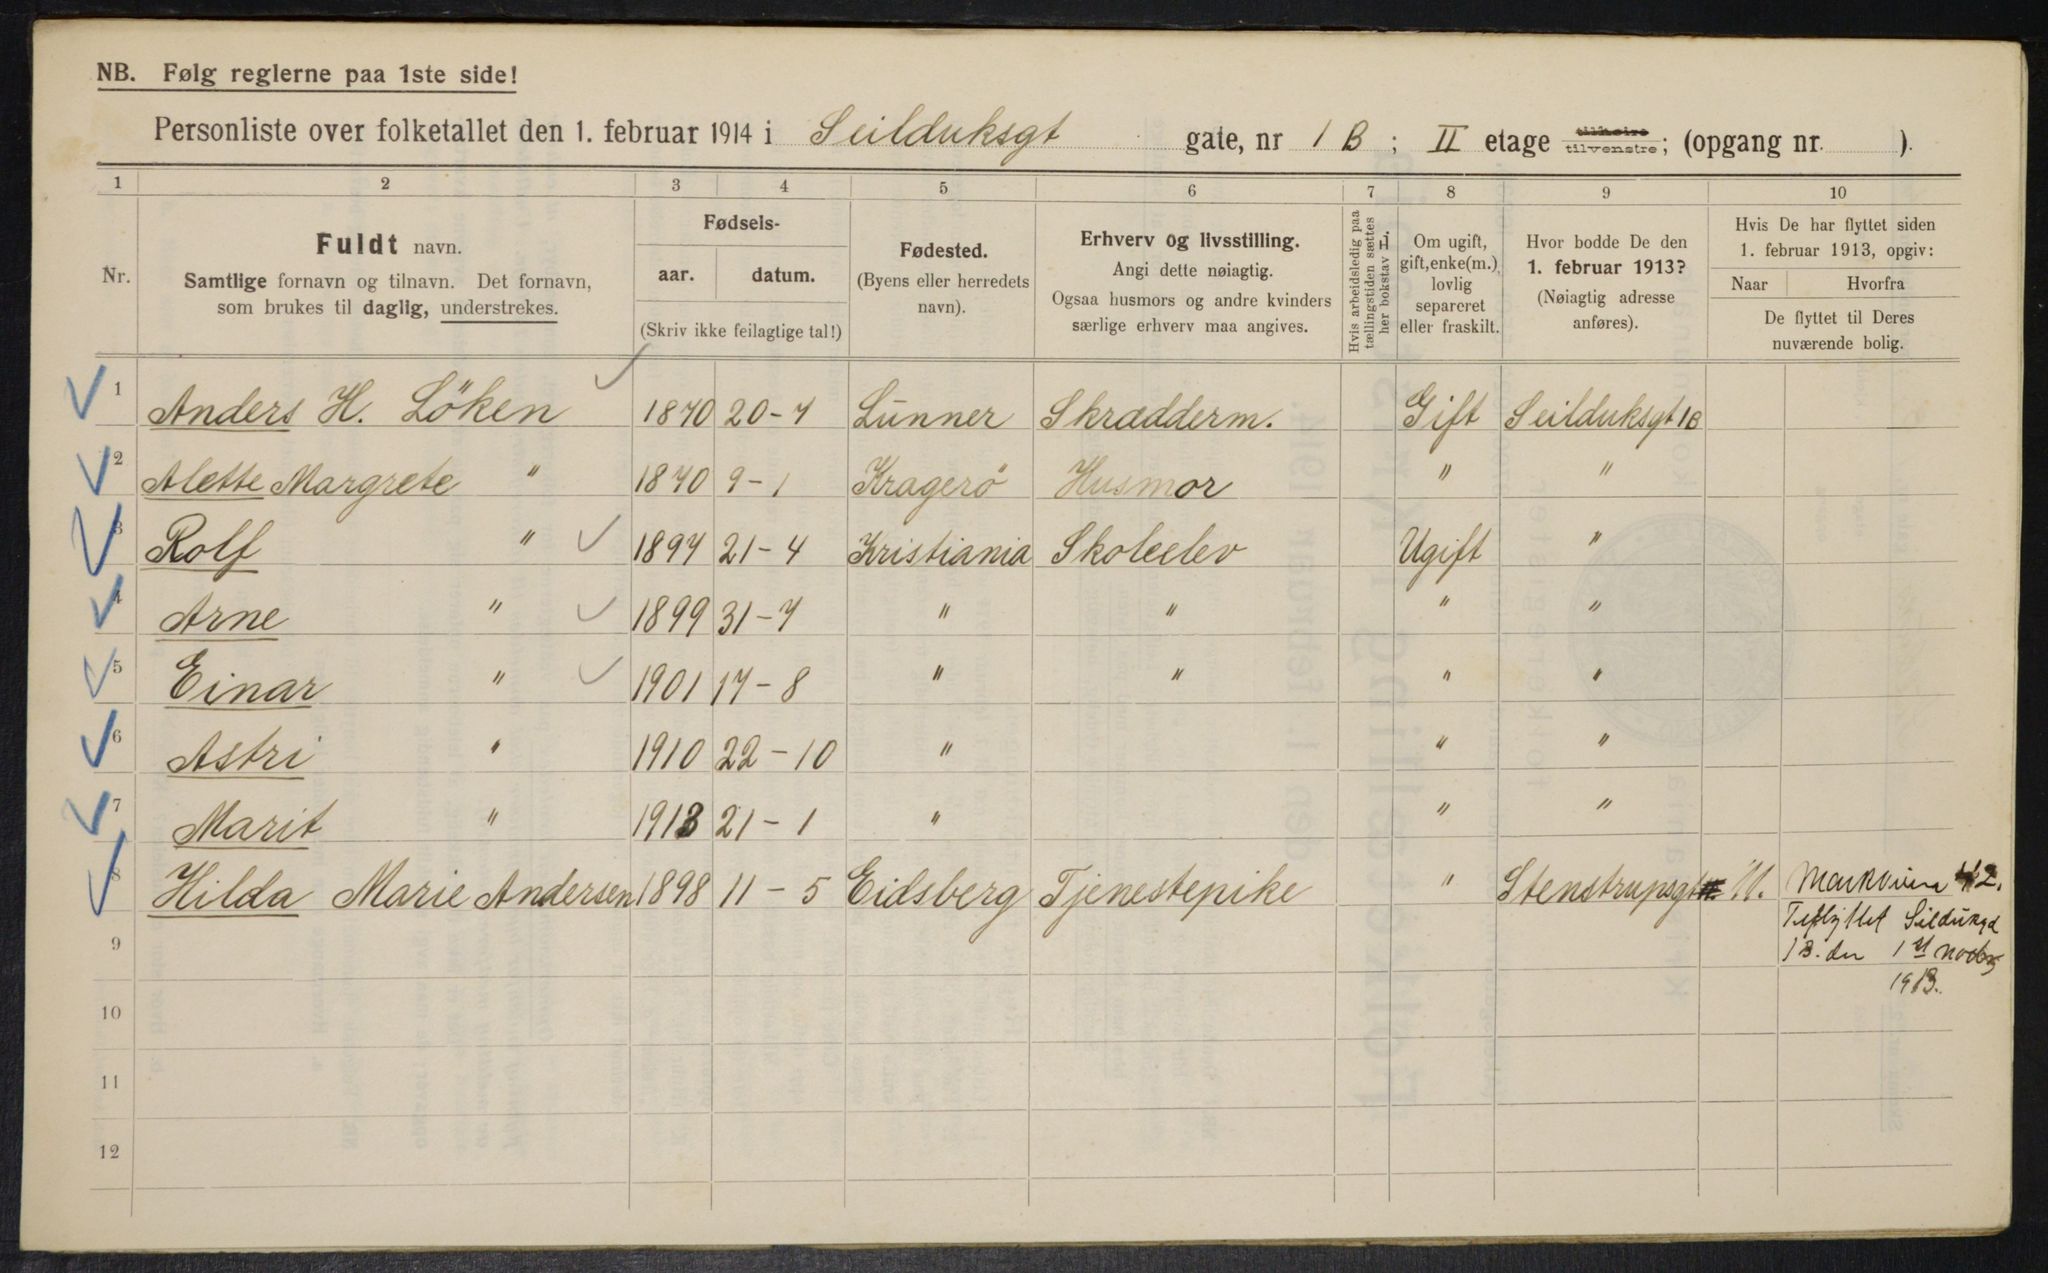 NB. Følg reglerne paa 1ste side!
Personliste over folketallet den 1. februar 1914 i Seilduksgt gate, nr 1 B; II etage tilhøire tilvenstre; (opgang nr. ).
1 2 3 4 5 6 7 8 9 10
Nr.
Fuldt navn.
Samtlige fornavn og tilnavn. Det fornavn,
som brukes til daglig, understrekes.
Fødsels-
aar. datum.
(Skriv ikke feilagtige tal!)
Fødested.
(Byens eller herredets
navn).
Erhverv og livsstilling.
Angi dette nøiagtig.
Ogsaa husmors og andre kvinders
særlige erhverv maa angives.
Hvis arbeidsledig paa
tællingstiden sættes
her bokstav L.
Om ugift,
gift, enke(m.),
lovlig
separeret
eller fraskilt.
Hvor bodde De den
1. februar 1913?
(Nøiagtig adresse
anføres).
Hvis De har flyttet siden
1. februar 1913, opgiv:
Naar Hvorfra
De flyttet til Deres
nuværende bolig.
1 Anders H. Löken 1870 20-7 Lunner Skrædderm. Gift Seilduksgt 1B
2 Alette Margrete " 1870 9-1 Kragerö Husmor " "
3 Rolf " 1897 21-4 Kristiania Skoleelev Ugift "
4 Arne " 1899 31-7 " " " "
5 Einar " 1901 17-8 " " " "
6 Astri " 1910 22-10 " " "
7 Marit " 1913 21-1 " " "
8 Hilda Marie Andersen 1898 11-5 Eidsberg Tjenestepike " Stenstrupsgt 11. 42.
1B. den 1st
1913.
9
10
11
12